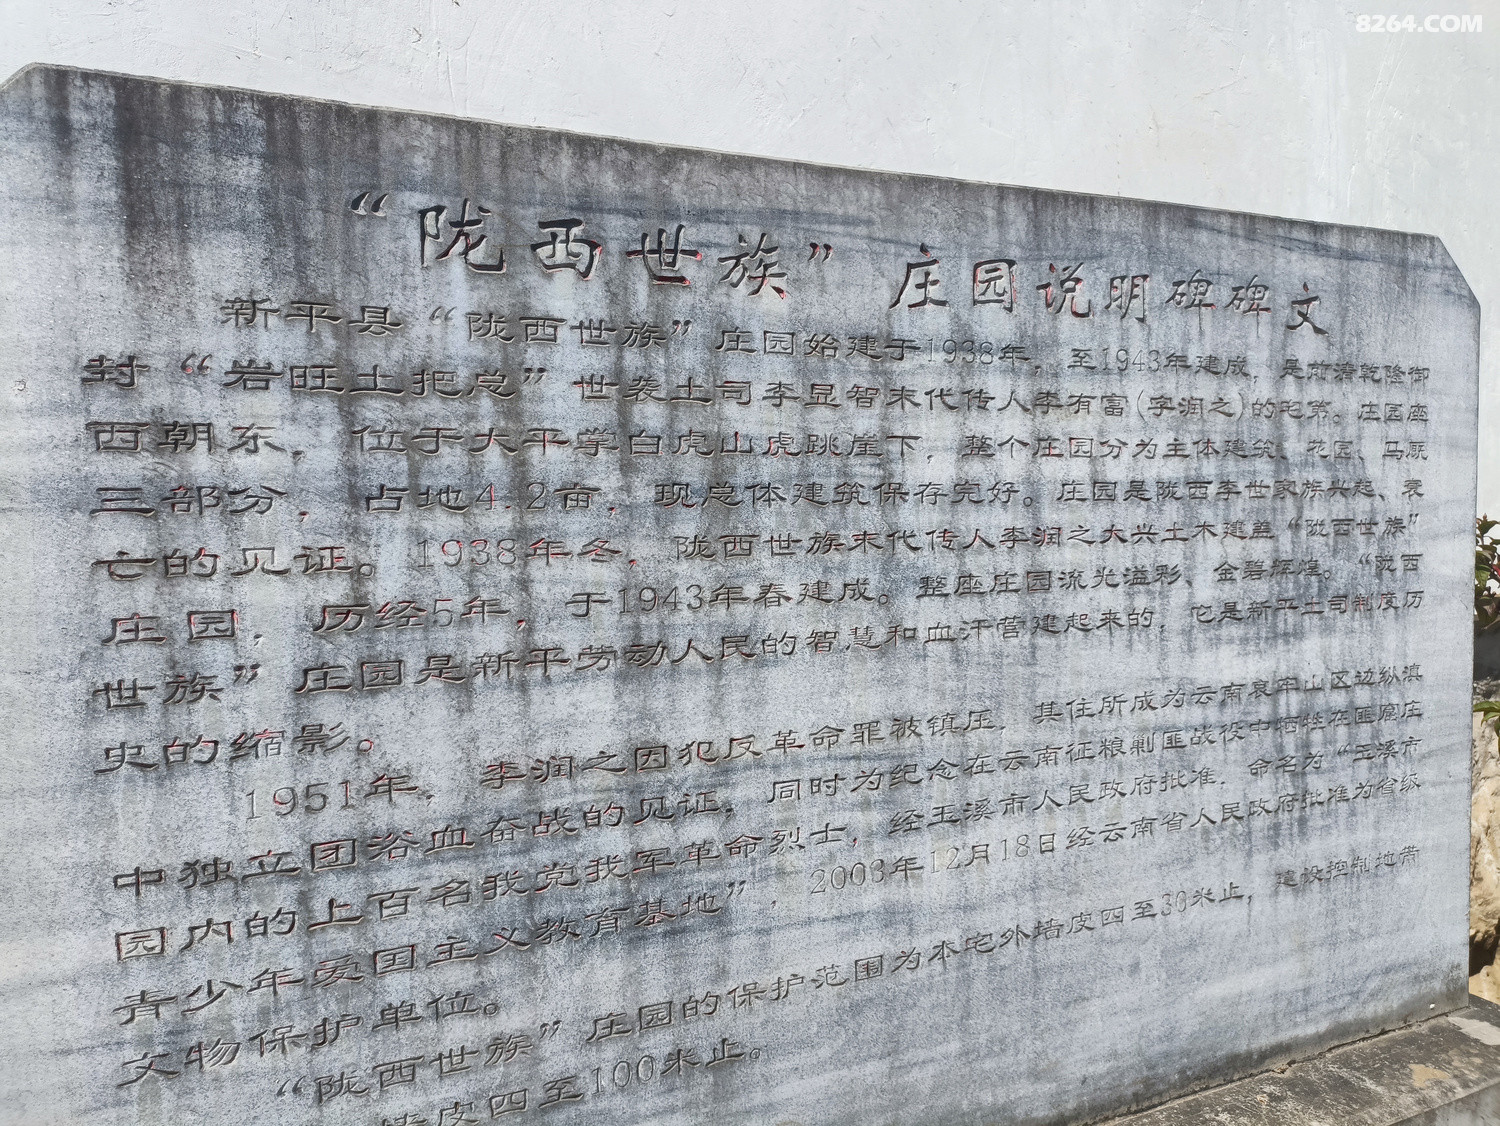 8264.COM
“陇西世族”庄园说明碑碑文
新平县“陇西世族”庄园始建于1938年，至1943年建成，是前清乾隆御
封“岩旺土把总”世袭土司李显智末代传人李有富(字润之)的宅第。庄园座
西朝东，位于大平掌白虎山虎跳崖下，整个庄园分为主体建筑、花园、马厩
三部分，占地4.2亩，现总体建筑保存完好。庄园是陇西李世家族兴起、衰
亡的见证。1938年冬，陇西世族末代传人李润之大兴土木建盖“陇西世族”
庄园，历经5年，于1943年春建成。整座庄园流光溢彩、金碧辉煌。“陇西
世族”庄园是新平劳动人民的智慧和血汗营建起来的，它是新平土司制度历
史的缩影。
1951年，李润之因犯反革命罪被镇压，其住所成为云南哀牢山区边纵滇
中独立团浴血奋战的见证，同时为纪念在云南征粮剿匪战役中牺牲在匪窟庄
园内的上百名我党我军革命烈士，经玉溪市人民政府批准，命名为“玉溪市
青少年爱国主义教育基地”，2003年12月18日经云南省人民政府批准为省级
文物保护单位。
“陇西世族”庄园的保护范围为本宅外墙皮四至30米止，建设控制地带
墙皮四至100米止。